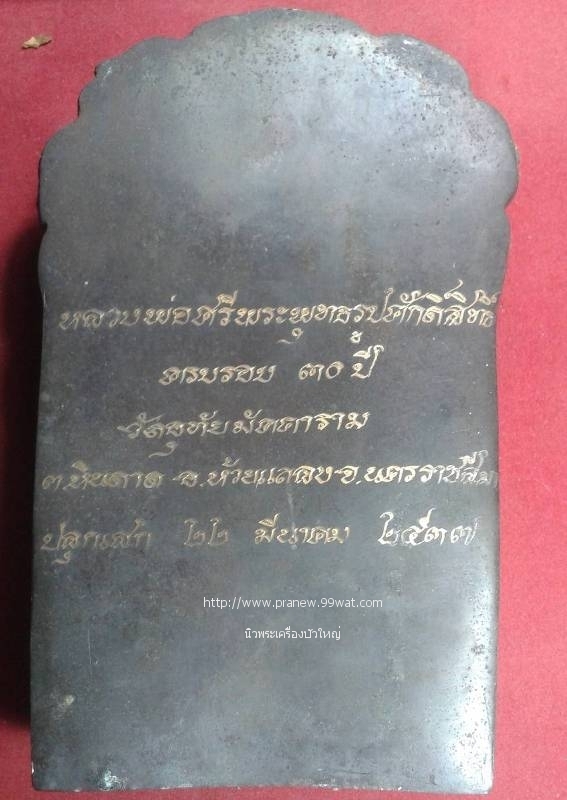 หลวงพ่อศรีพระพุทธรูปศักดิ์สิทธิ์
ครบรอบ ๓๐ ปี
วัดอุทัยมัคคาราม
ต.หินดาด อ.ห้วยแถลง จ.นครราชสีมา
ปลุกเสก ๒๒ มีนาคม ๒๕๓๗
http://www.pranew.99wat.com
นิวพระเครื่องบัวใหญ่